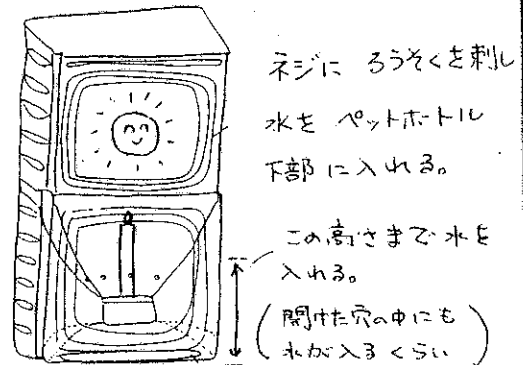 ネジに ろうそくを刺し
水を ペットボトル
下部に入れる。
この高さまで水を
入れる。
(開けた穴の中にも
水が入るくらい)